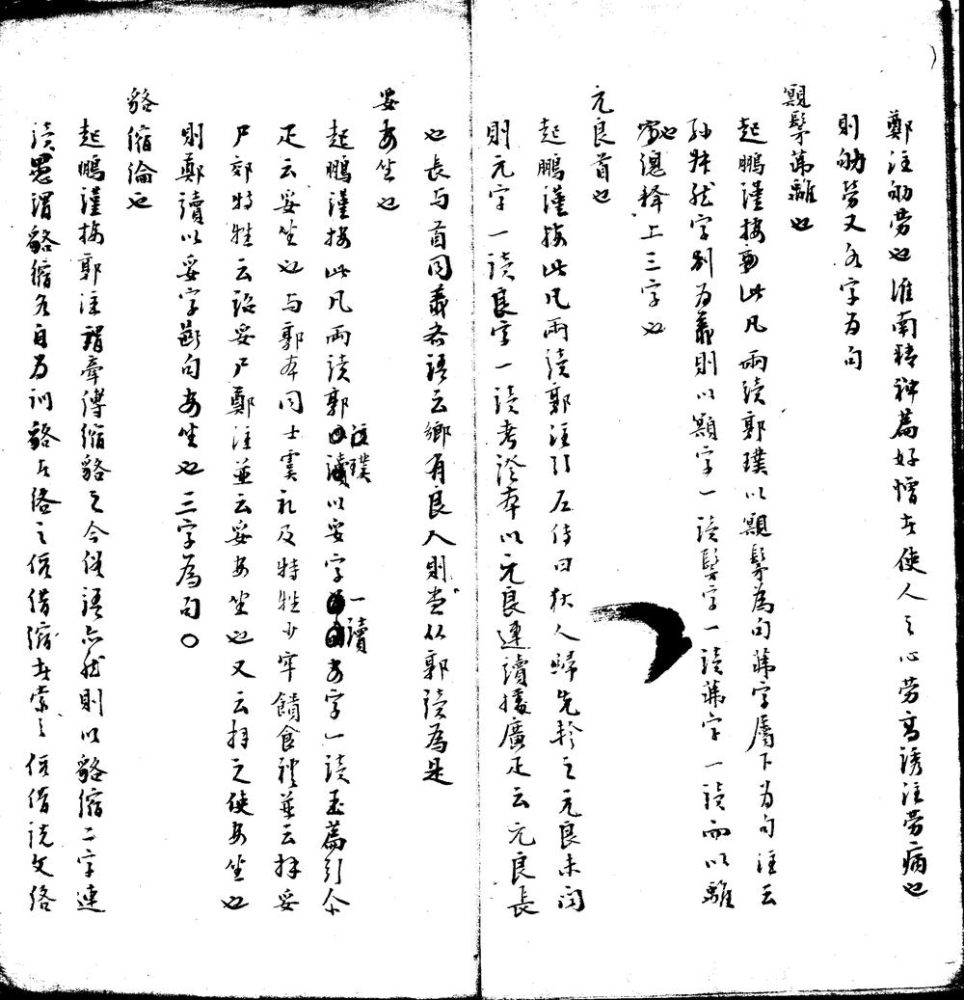 鄭注勩勞也淮南精神篇好憎者使人之心勞高誘注勞病也
則勩勞又各字为句
覭髳茀離也
起鵬謹按此凡兩读郭璞以覭髳為句茀字屬下为句注云
孙然字别为義則以覭字一读髳字一读茀字一读而以離
也總释上三字也
元良首也
起鵬謹按此凡兩读郭注引左传曰狄人歸先軫之元良未闻
則元字一读良字一读考證本以元良連讀據廣疋云元良長
也長与首同義齐語云鄉有良人則当从郭读為是
妥安坐也
起鵬謹按此凡兩读郭注璞以妥字一讀安字一读玉篇引尔
疋云妥坐也与郭本同士虞礼及特牲少牢饋食禮並云拜妥
尸郊特牲云詔妥尸鄭注並云妥安坐也又云拜之使安坐也
則鄭讀以妥字断句安坐也三字為句〇
貉縮綸也
起鵬謹按郭注謂牽縛縮貉之今俗語亦然則以貉縮二字連
读愚謂貉縮各自为训貉者络之假借縮者索之假借说文络